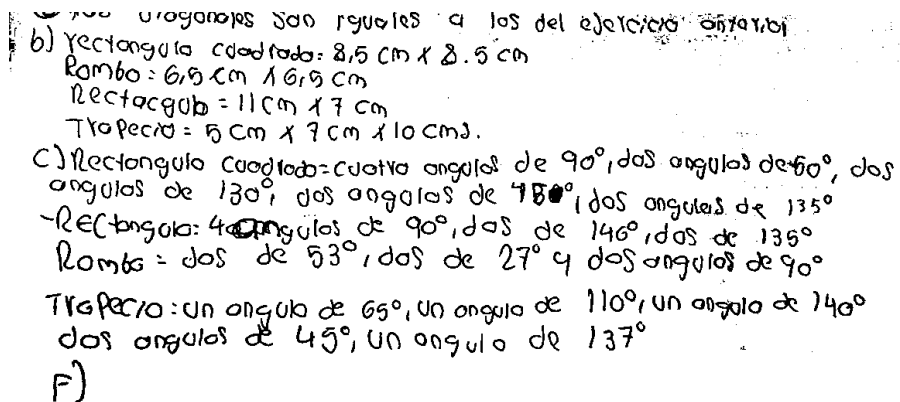 diagonales son iguales a los del ejercicio anterior
b) rectangulo cuadrado: 8,5 cm x 8.5 cm
Rombo = 6,5 cm x 6,5 cm
= 11 cm x 7 cm
Tropecio = 5 cm x 7 cm x 10 cms.
C) Rectongulo cuadrado = cuatro angulos de 90°, dos angulos de 50°, dos
angulos de 130°, dos angulos de , dos angulos de 135°
-REctangulo: 4 angulos de 90°, dos de 146°, dos de 135°
Rombo = dos de 53°, dos de 27° y dos angulos de 90°
Tropecio: un angulo de 65°, un angulo de 110°, un angulo de 140°
dos angulos de 45°, un angulo de 137°
F)